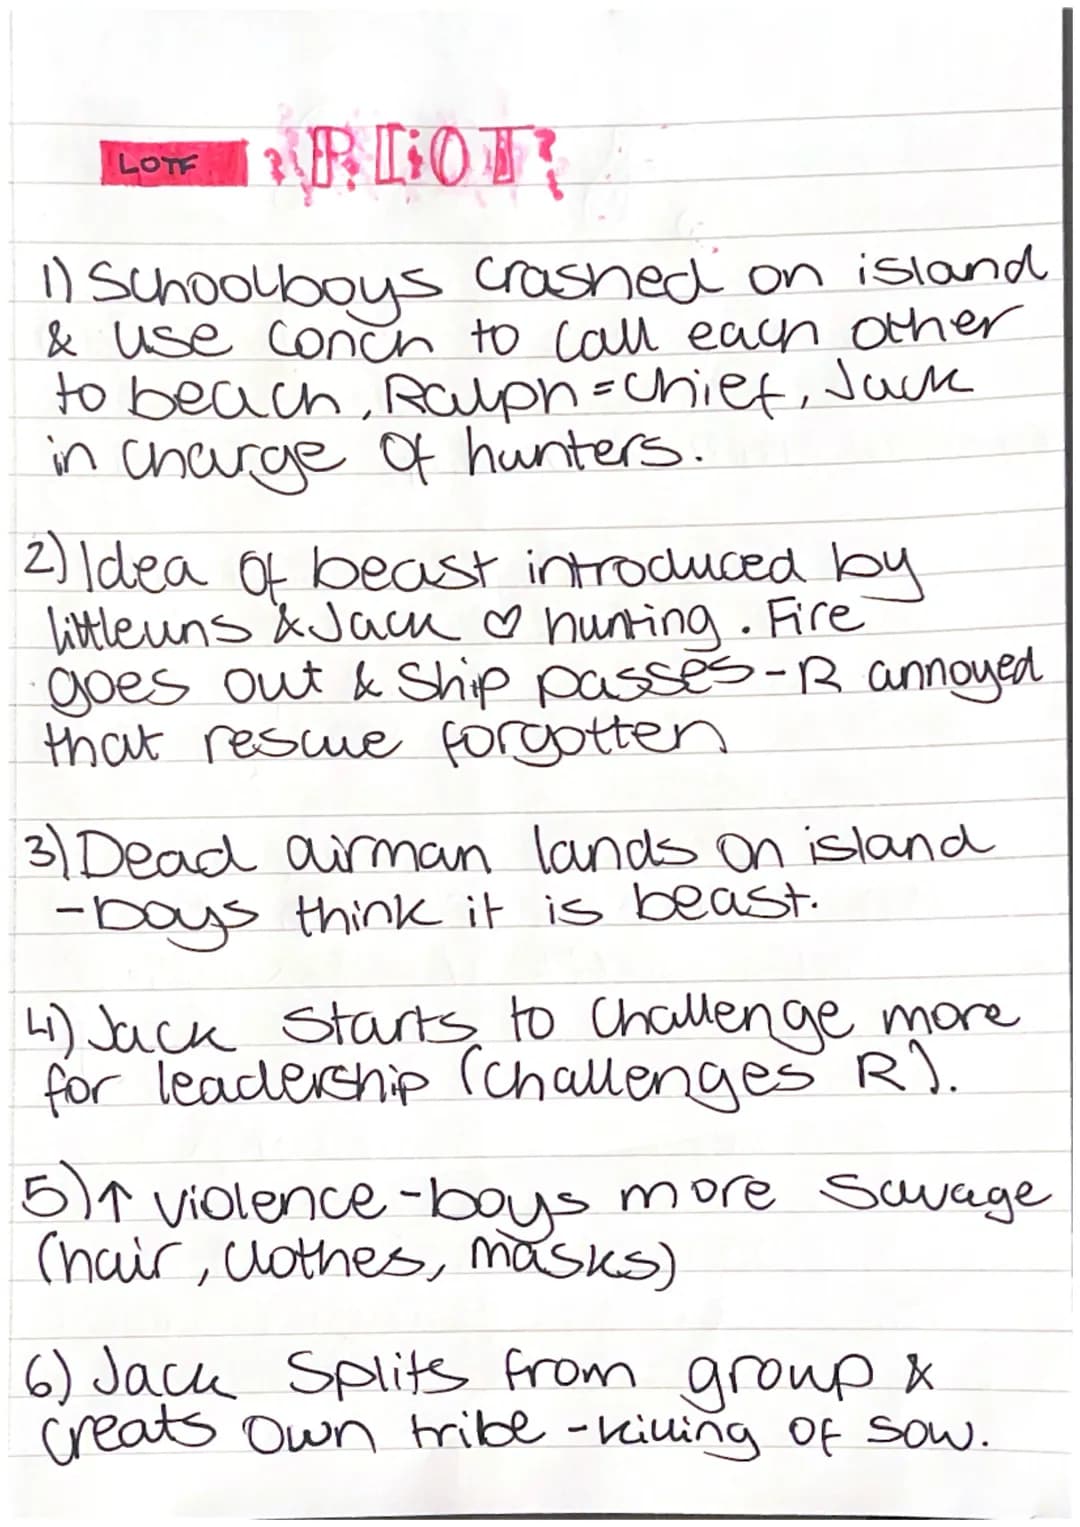 LOTF PLOT
1) Schoolboys crashed on island
& use conch to call each other
to beach, Ralph = chief, Jack
in charge of hunters.
2) Idea of beast introduced by
littleuns & Jack ♡ hunting. Fire
goes out & ship passes - R annoyed
that rescue forgotten
3) Dead airman lands on island
- boys think it is beast.
4) Jack starts to challenge more
for leadership (challenges R).
5) ↑ violence - boys more savage
(hair, clothes, masks)
6) Jack splits from group &
creats own tribe - killing of sow.